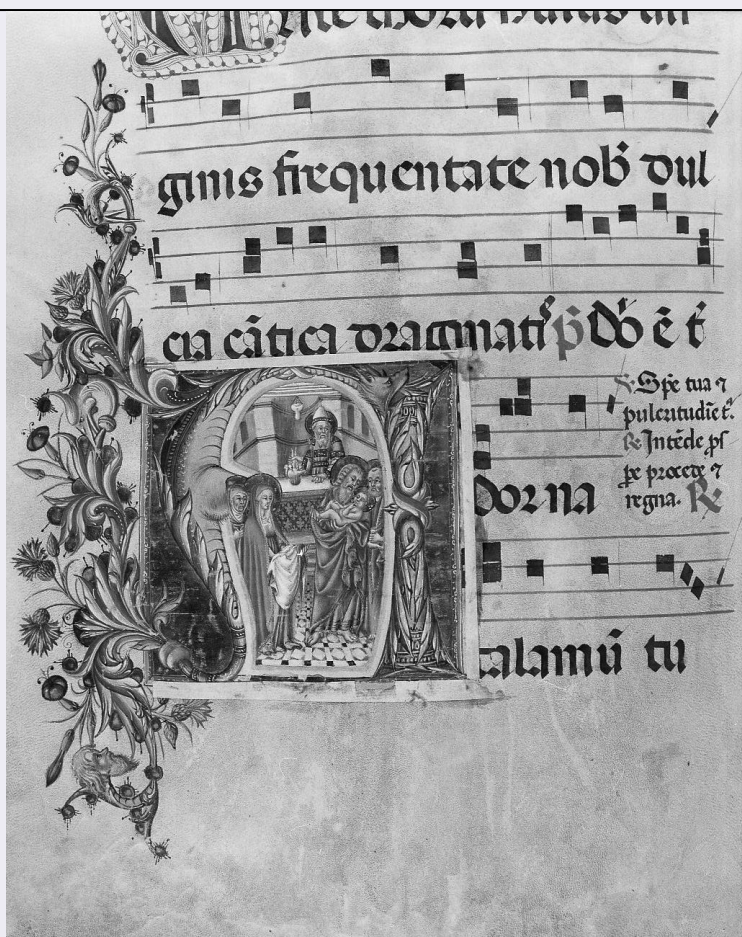 ginis frequentate nob̄ dul
cia cātica dragmatis p̄ Do ē t̄
℣ Spē tua ⁊
pulcritudīe t̄.
℟ Intēde ꝓs
pe procede ⁊
regna. ℟
A dorna
talamū tu